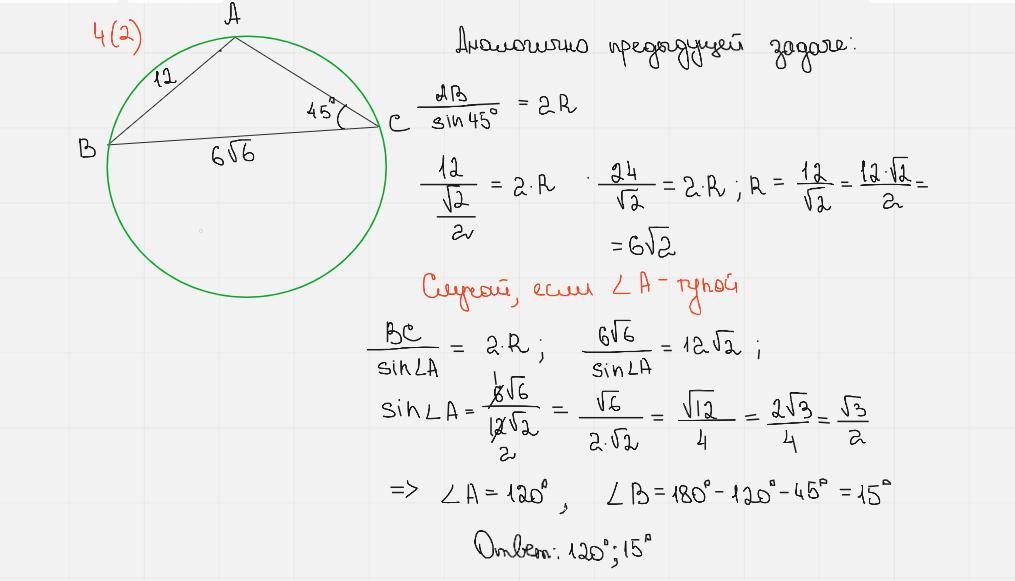 4(2)
A
12
45°
B
C
6√6
Аналогично предыдущей задаче:
AB/sin45° = 2R
12/(√2/2) = 2·R   24/√2 = 2·R ; R = 12/√2 = 12·√2/2 =
= 6√2
Случай, если ∠A - тупой
BC/sin∠A = 2·R ;   6√6/sin∠A = 12√2 ;
sin∠A = 6√6/12√2 = √6/2·√2 = √12/4 = 2√3/4 = √3/2
1
2
=> ∠A = 120° ,   ∠B = 180° - 120° - 45° = 15°
Ответ: 120°; 15°